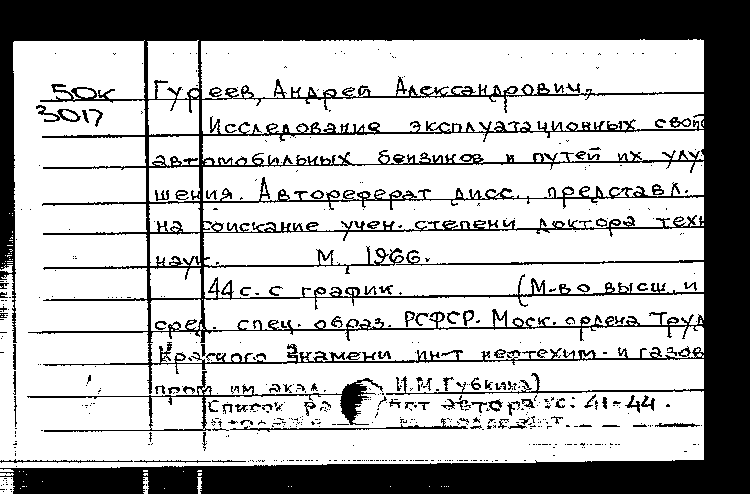 50К Гуреев, Андрей Александрович,
3017
Исследование эксплуатационных свой
автомобильных бензинов и путей их улу
шения. Автореферат дисс., представл.
на соискание учен. степени доктора техн
наук. М., 1966.
44 с. с график. (М-во высш. и
сред. спец. образ. РСФСР. Моск. ордена Труд
Красного Знамени ин-т нефтехим. и газов
пром. им. акад. И.М. Губкина)
Список работ автора: с: 41-44.